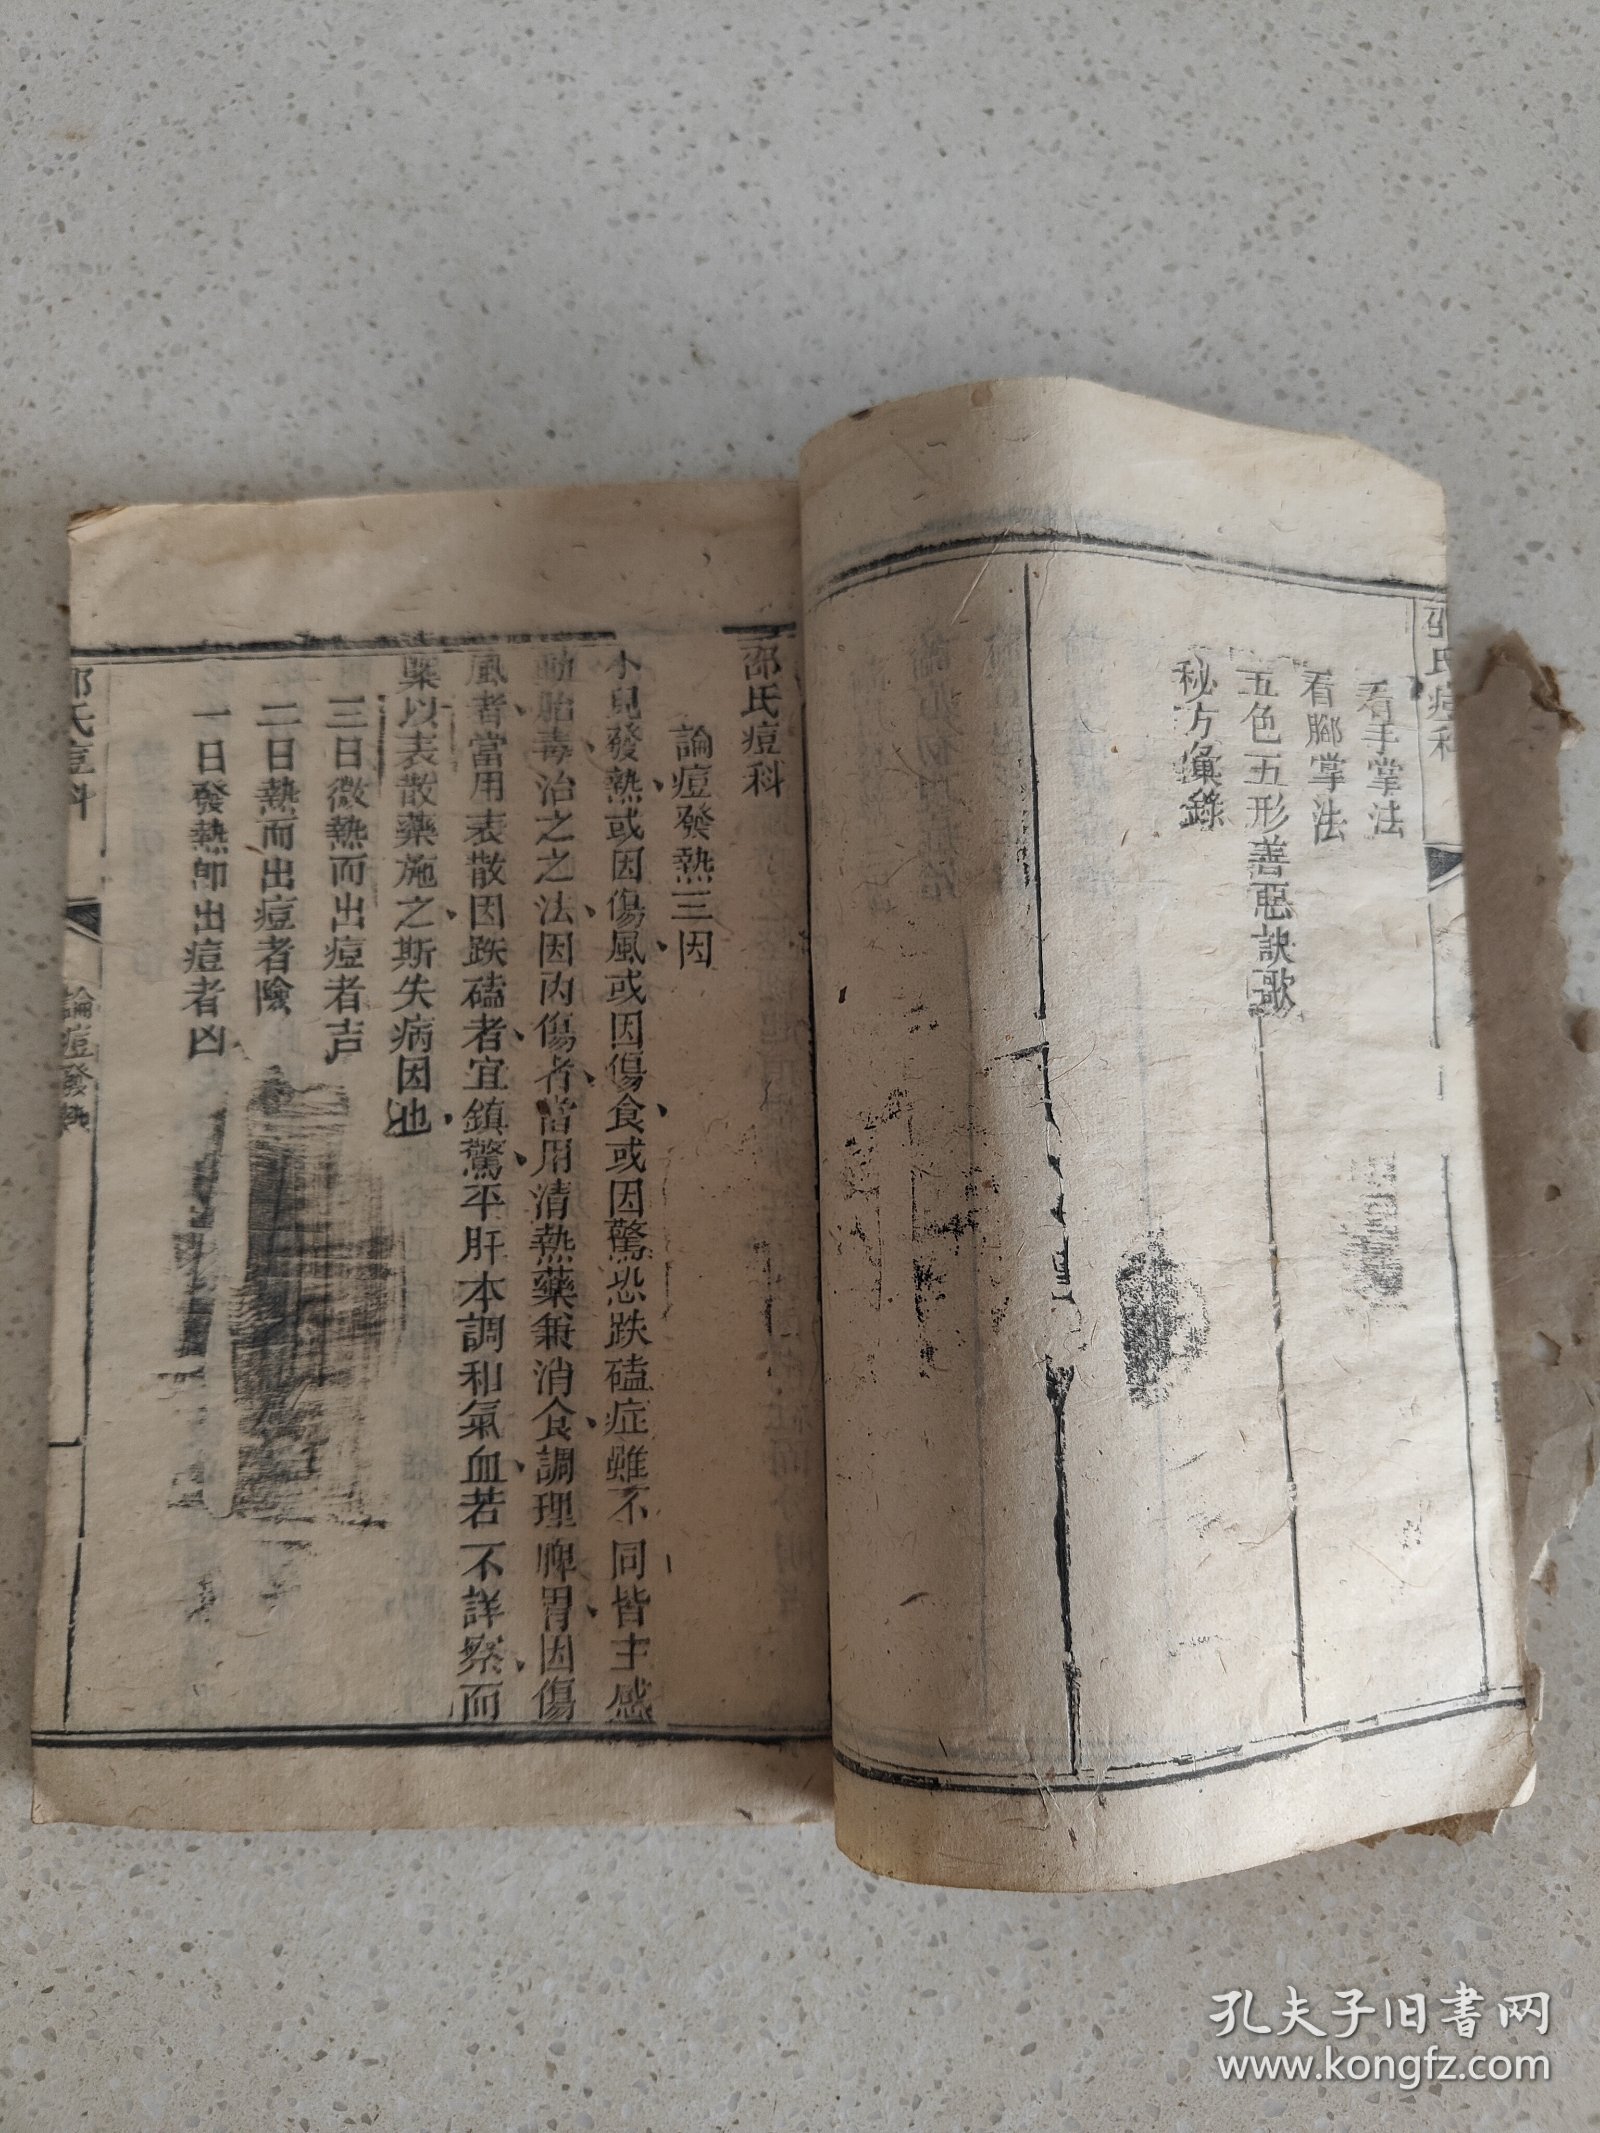 邵氏痘科
看手掌法
看腳掌法
五色五形善惡訣歌
秘方彙錄
邵氏痘科
論痘發熱三因
小兒發熱或因傷風或因傷食或因驚恐跌磕症雖不同皆主感
動胎毒治之之法因內傷者當用清熱藥兼消食調理脾胃因傷
風者當用表散因跌磕者宜鎮驚平肝本調和氣血若不詳察而
槩以表散藥施之斯失病因也
三日微熱而出痘者吉
二日熱而出痘者險
一日發熱即出痘者凶
邵氏痘科
論痘發熱
孔夫子旧书网
www.kongfz.com